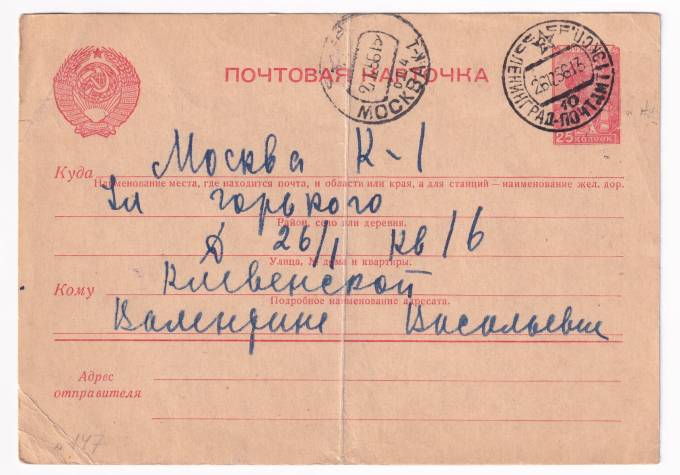 ПОЧТОВАЯ КАРТОЧКА
МОСКВА
ЛЕНИНГРАД-ПОЧТАМТ
261256.13
10
25 КОПЕЕК
Куда Москва К-1
Наименование места, где находится почта, и области или края, а для станций — наименование жел. дор.
Ул горького
Район, село или деревня.
Д 26/1 кв 16
Улица, № дома и квартиры.
Кому Клевенской
Подробное наименование адресата.
Валентине Васильевне
Адрес
отправителя
147